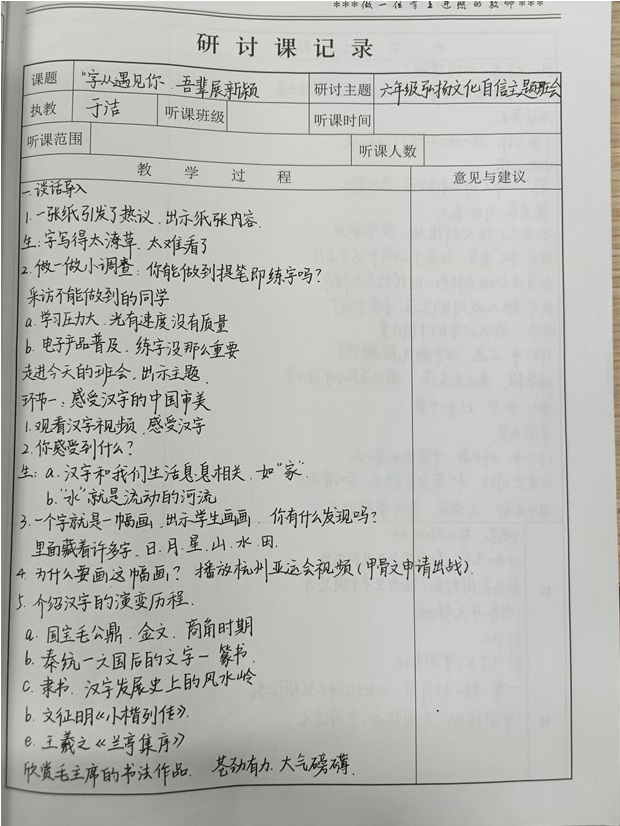 ***做一位
研讨课记录
课题 "字从遇见你 吾辈展新颖 研讨主题 六年级弘扬文化自信主题班会
执教 于洁 听课班级 听课时间
听课范围 听课人数
教学过程 意见与建议
一.谈话导入
1.一张纸引发了热议.出示纸张内容.
生:字写得太潦草.太难看了
2.做一做小调查:你能做到提笔即练字吗?
采访不能做到的同学
a.学习压力大.光有速度没有质量
b.电子产品普及.练字没那么重要
走进今天的班会,出示主题.
环节一:感受汉字的中国审美
1.观看汉字视频.感受汉字
2.你感受到什么?
生:a.汉字和我们生活息息相关.如"家"
b."水"就是流动的河流
3.一个字就是一幅画.出示学生画画.你有什么发现吗?
里面藏着许多字.日.月.星.山.水.田.
4.为什么要画这幅画?播放杭州亚运会视频(甲骨文申请出战).
5.介绍汉字的演变历程.
a.国宝毛公鼎.金文.商角时期
b.秦统一六国后的文字一篆书.
c.隶书.汉字发展史上的风水岭
b.文征明《小楷列传》.
e.王羲之《兰亭集序》
欣赏毛主席的书法作品.苍劲有力.大气磅礴.